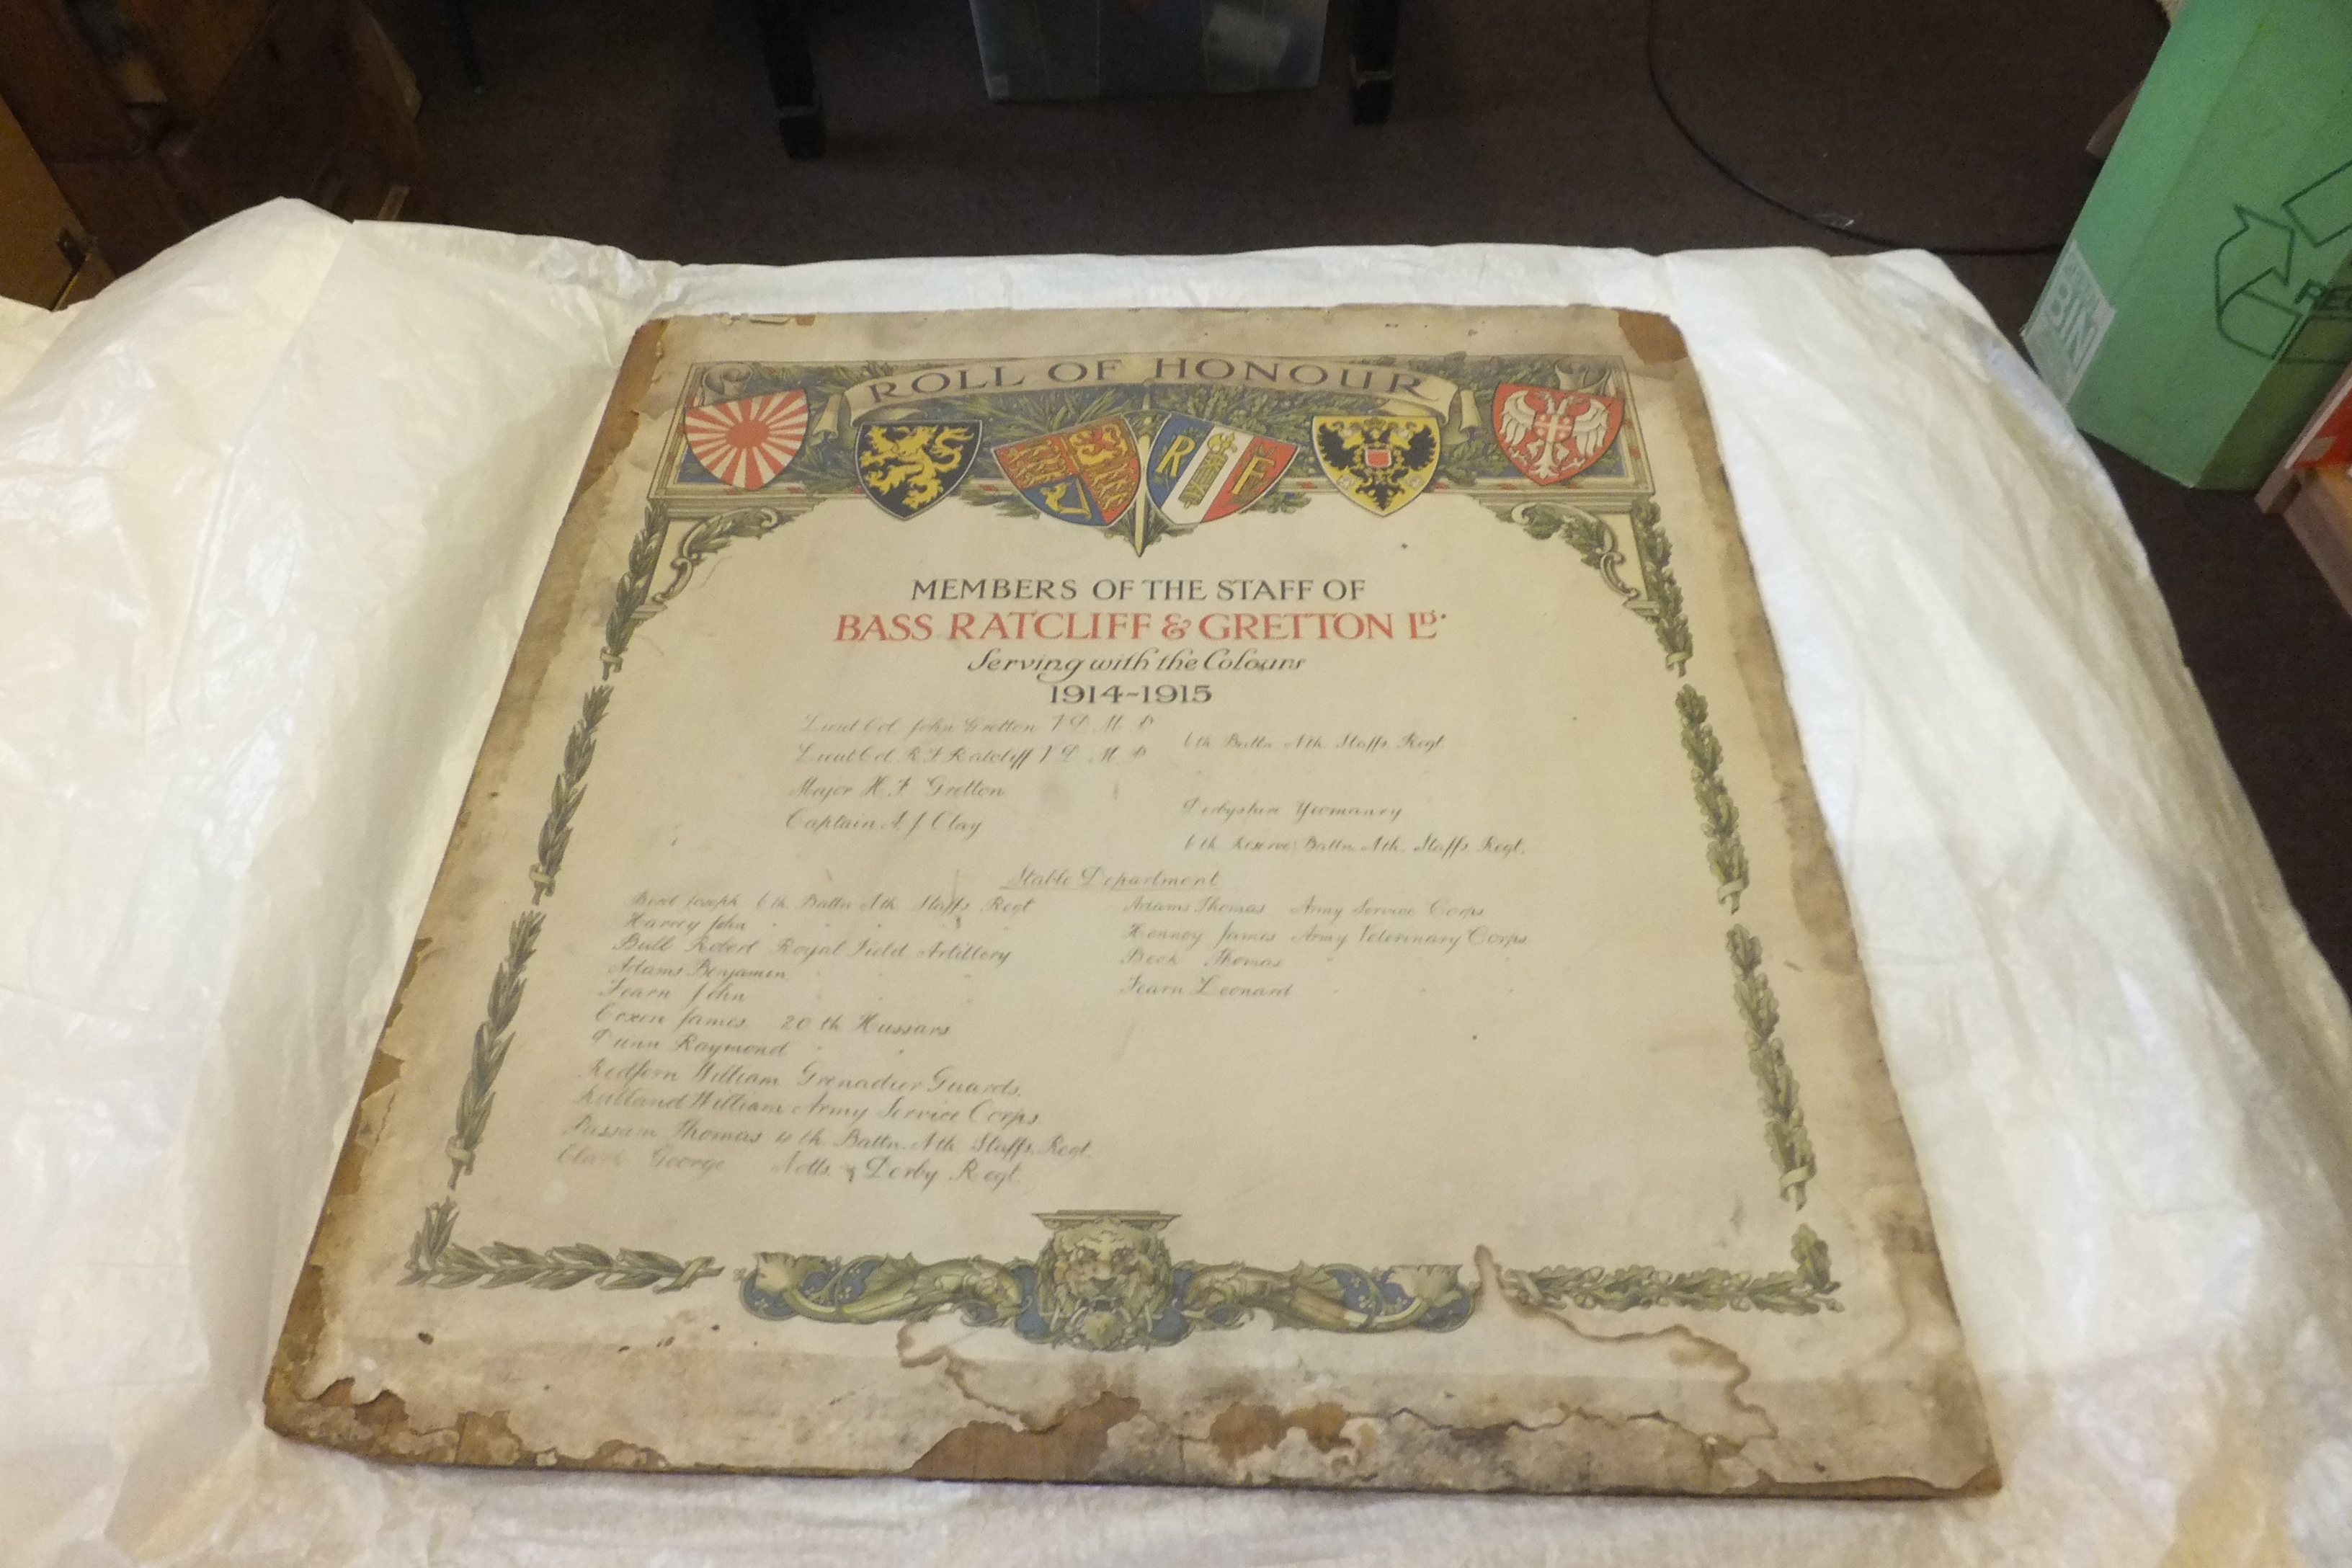 ROLL OF HONOUR
R F
MEMBERS OF THE STAFF OF
BASS RATCLIFF & GRETTON LD.
Serving with the Colours
1914-1915
Lieut Col John Gretton V D. M. P
Lieut Col. R F Ratcliff V D. M. P
6th Battn Nth Staffs Regt
Major H. F. Gretton
Derbyshire Yeomanry
Captain A J Clay
6th Reserve Battn Nth. Staffs Regt.
Stable Department
Joseph 6th Battn Nth Staffs Regt
Harvey John
Bull Robert Royal Field Artillery
Adams Benjamin
Fearn John
Coxon James 20th Hussars
Dunn Raymond
Redfern William Grenadier Guards.
Rutland William Army Service Corps
Passam Thomas Battn. Nth Staffs. Regt.
George Notts & Derby Regt.
Adams Thomas Army Service Corps
Henney James Army Veterinary Corps
Beck Thomas
Fearn Leonard
BIN